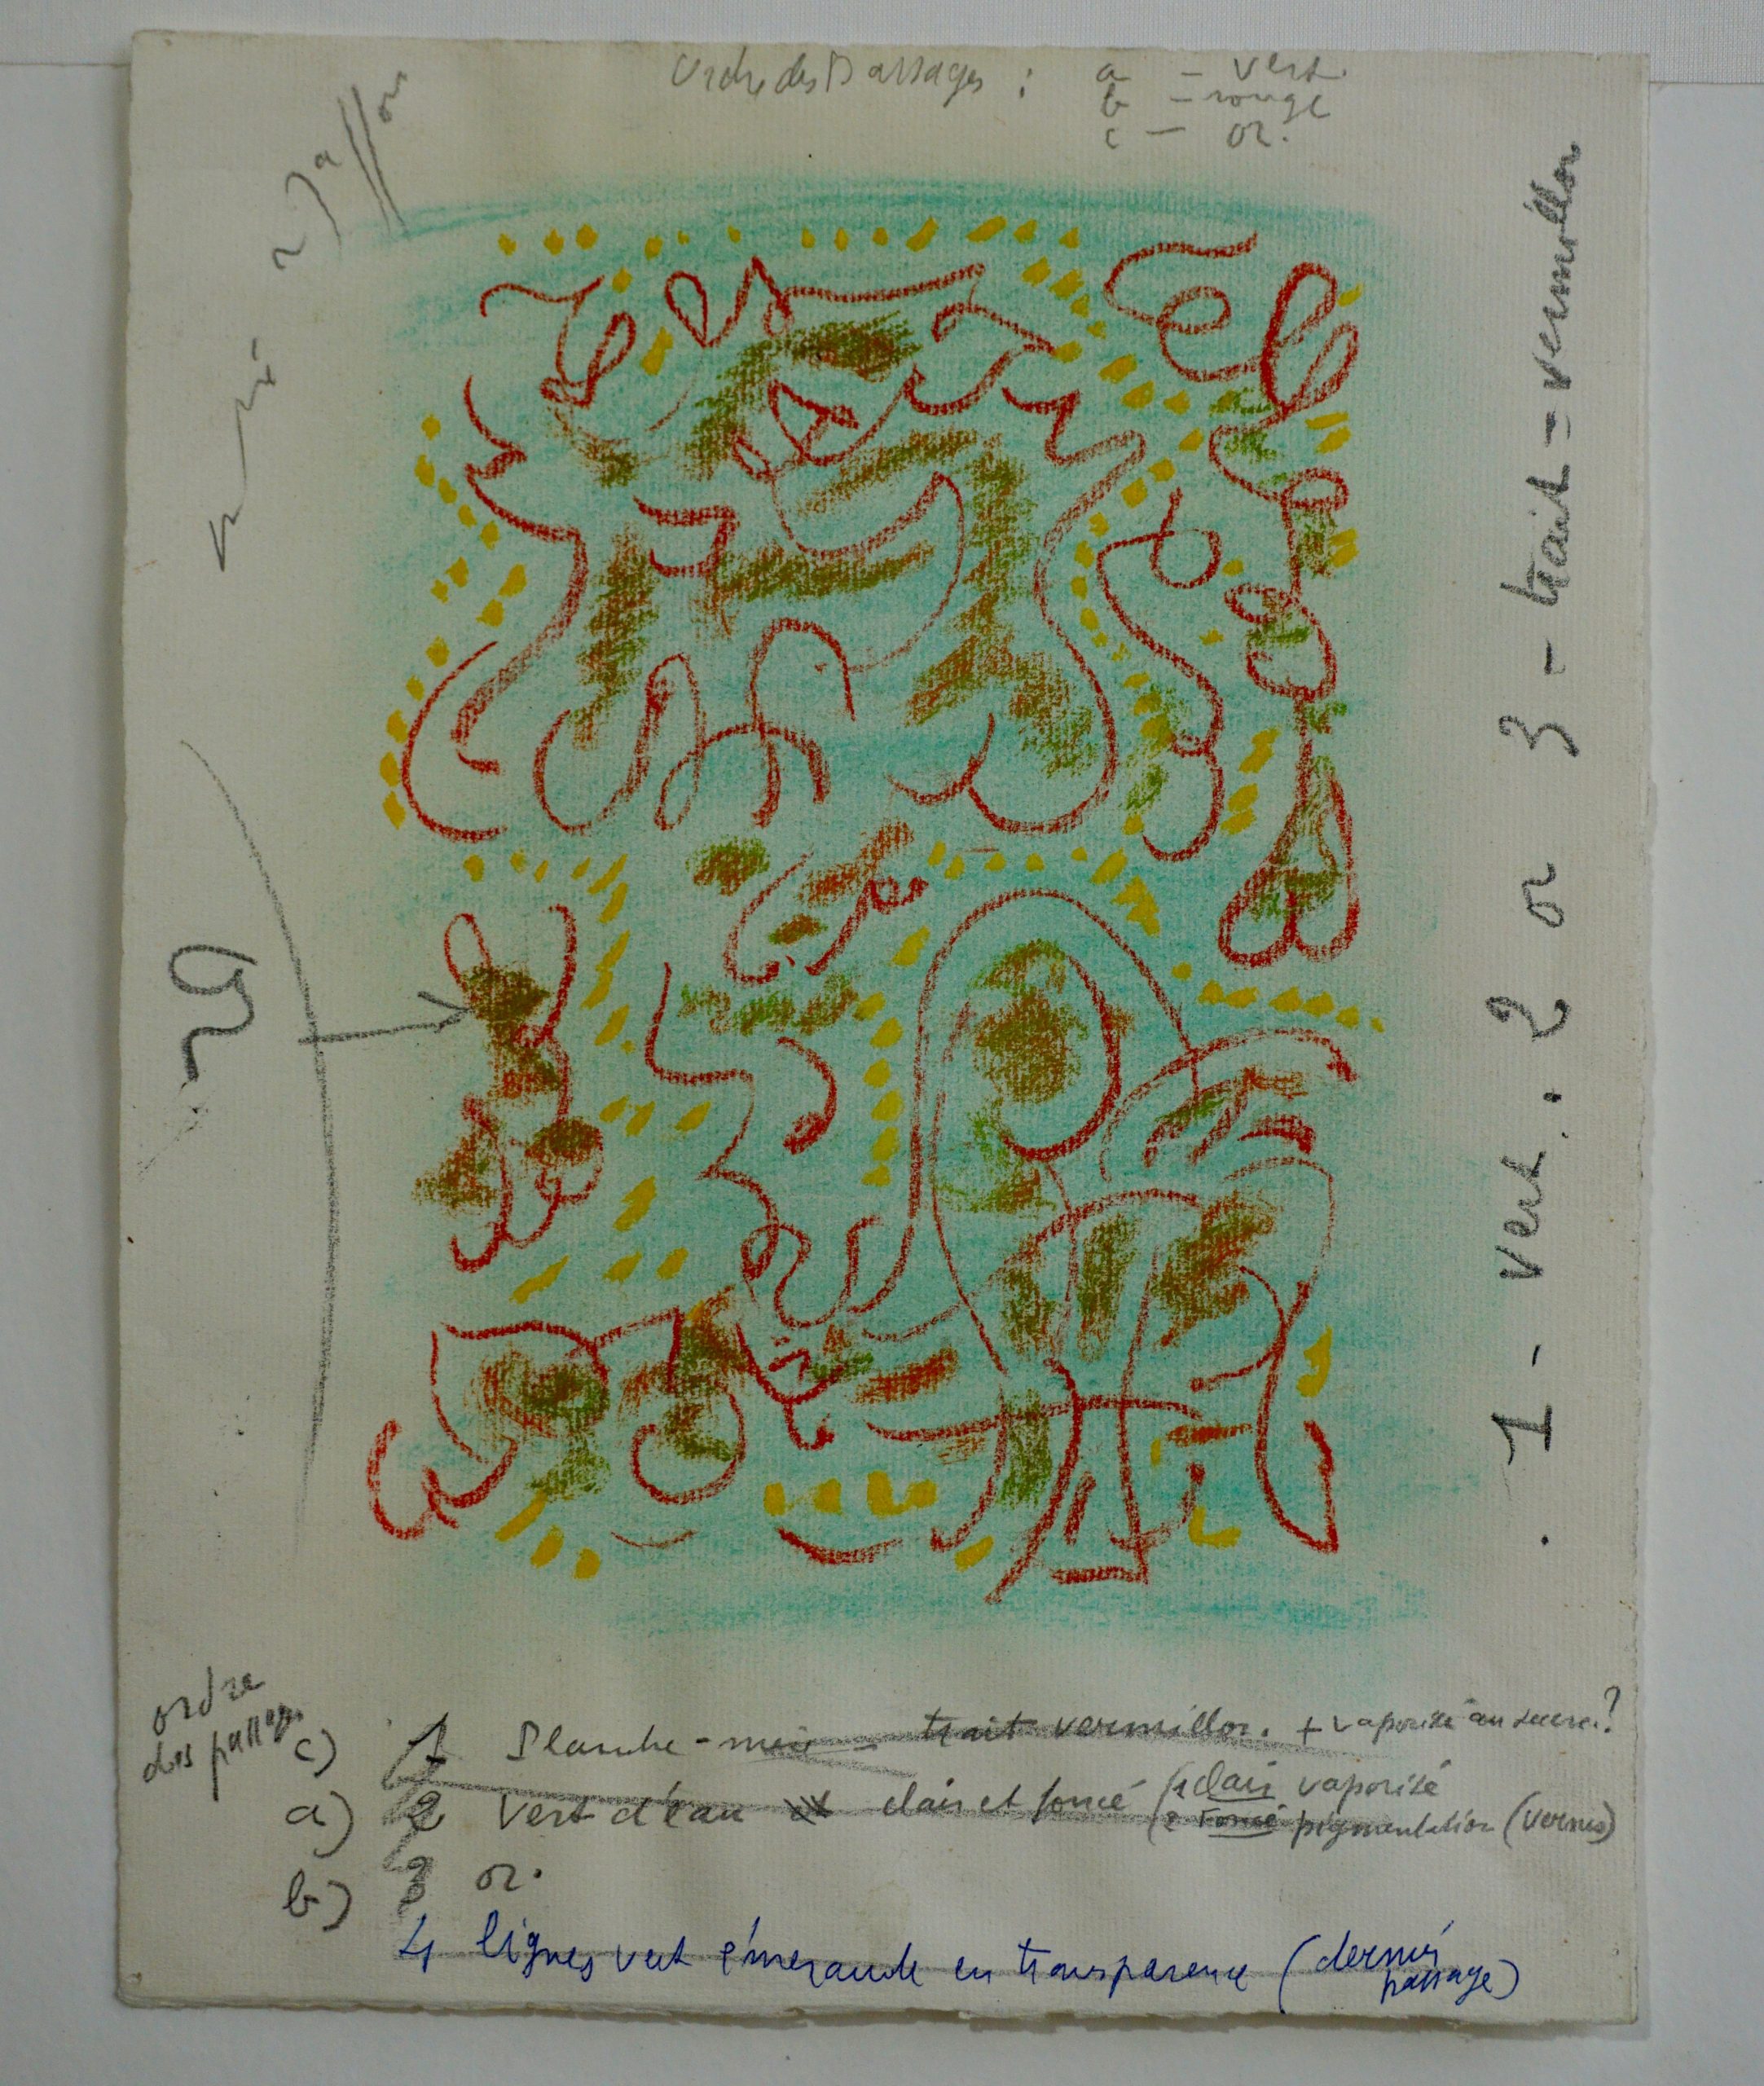 Ordre des Passages : a – vert.
b – rouge
c – or.
1 - vert . 2 or 3 - trait = vermillon
ordre
des passages
c) 1 Planche-mère = trait vermillon. + vaporisé au sucre ?
a) 2 Vert d'eau et clair et foncé (1 clair vaporisé
2 Foncé pigmentation (vernis)
b) 3 or.
4 lignes vert émeraude en transparence (dernier
passage)